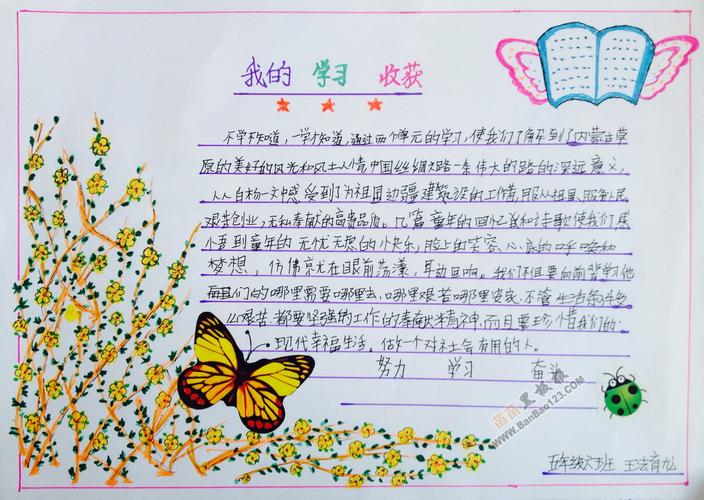 我的 学习 收获
不学不知道,一学才知道,通过两个单元的学习,使我们了解到了内蒙古草
原的美好的风光和风土人情,中国丝绸之路一条伟大的路的深远意义,
从白杨一文中感受到了为祖国边疆建设的工作情,服从祖国、服务人民
艰苦创业,无私奉献的高贵品质。几篇童年的回忆和诗歌使我们感
悟到童年的无忧无虑的快乐,脸上的笑容、心底的呼唤和
梦想,仿佛就在眼前荡漾,耳边回响。我们不但要向前辈学习他
们的哪里需要哪里去,哪里艰苦哪里安家,不管生活条件多
么艰苦都要坚强的工作的奉献精神,而且要珍惜我们的
现代幸福生活。做一个对社会有用的人。
努力 学习 奋斗
苗苗黑板报
www.BanBao123.com
五年级六班 王法育